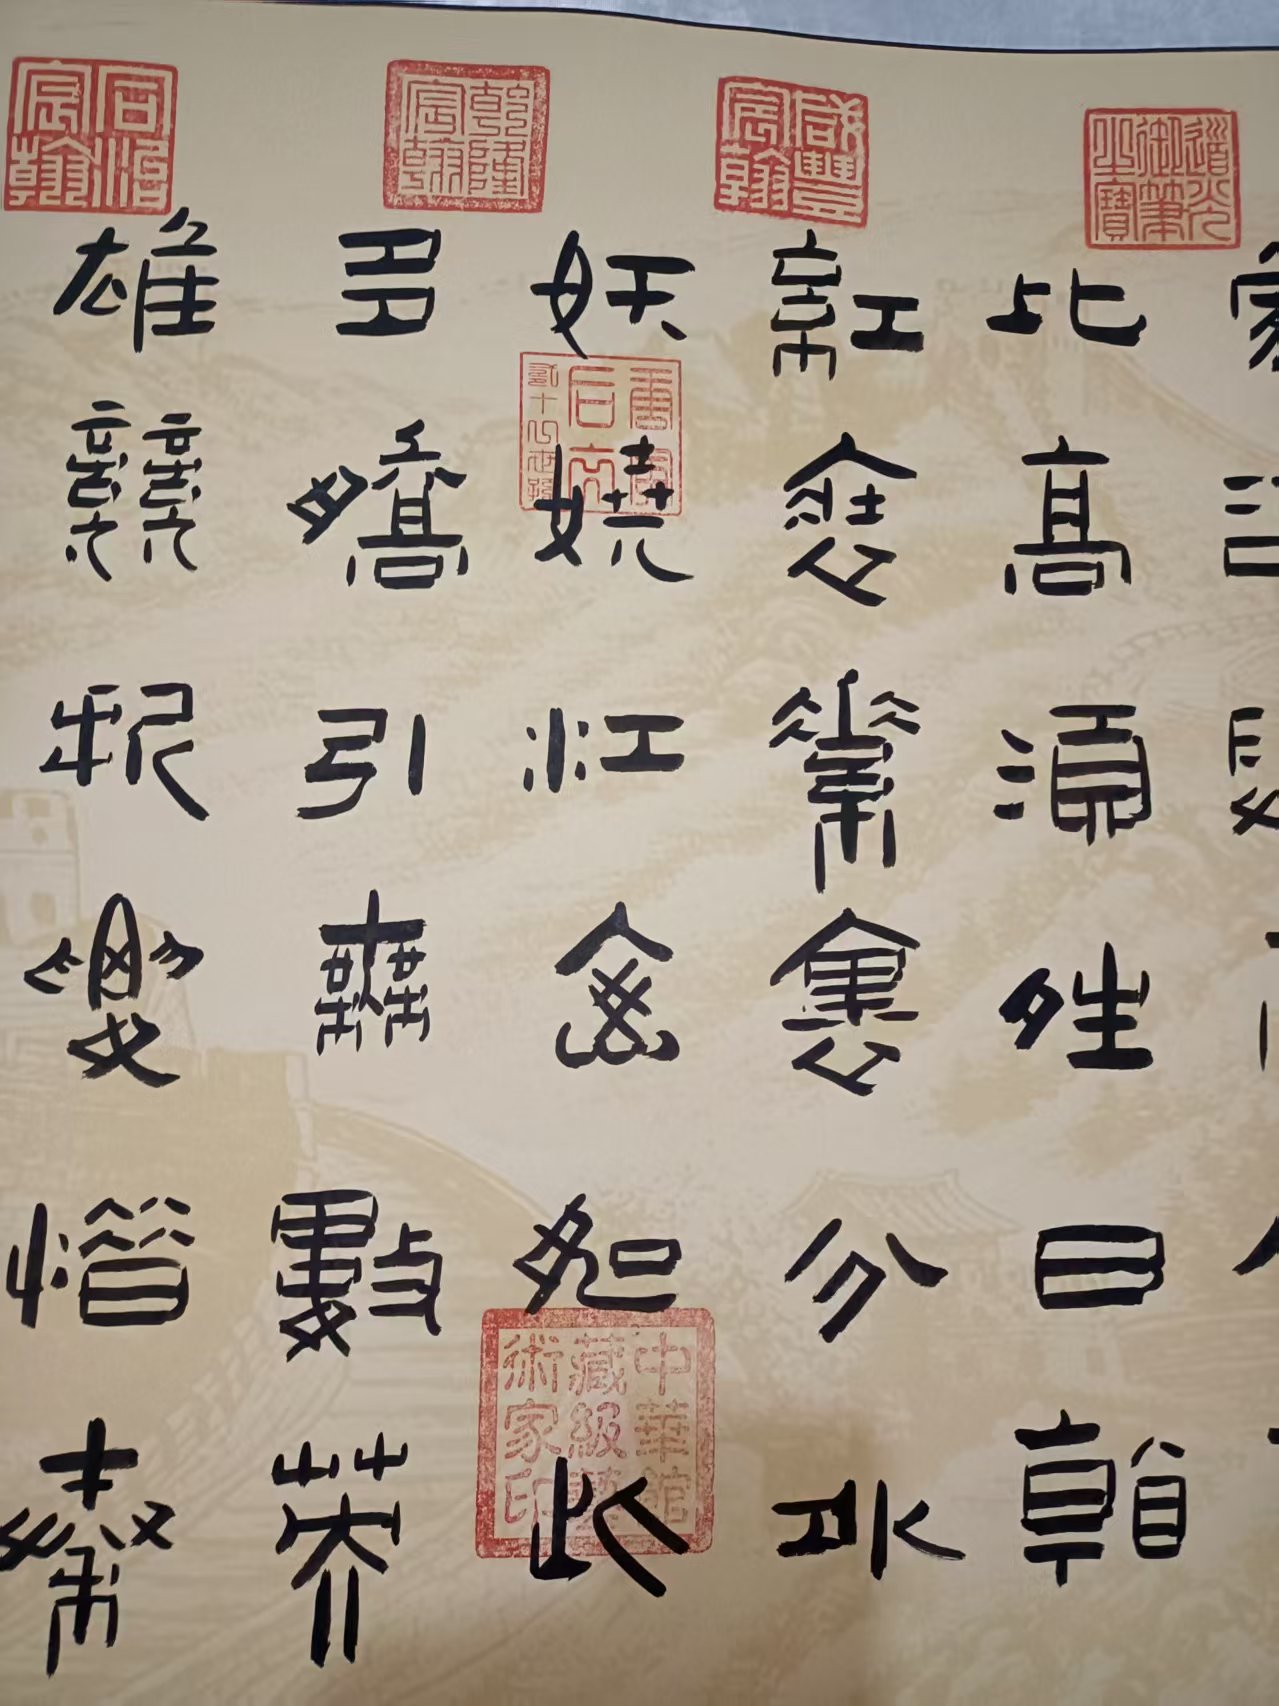 道光御筆之寶
咸豐宸翰
乾隆宸翰
同治宸翰
比高須夝日看
紅裝素裹分外
妖嬈江山如此
多嬌引無數英
雄競折腰惜秦
中華館藏級藝術家印